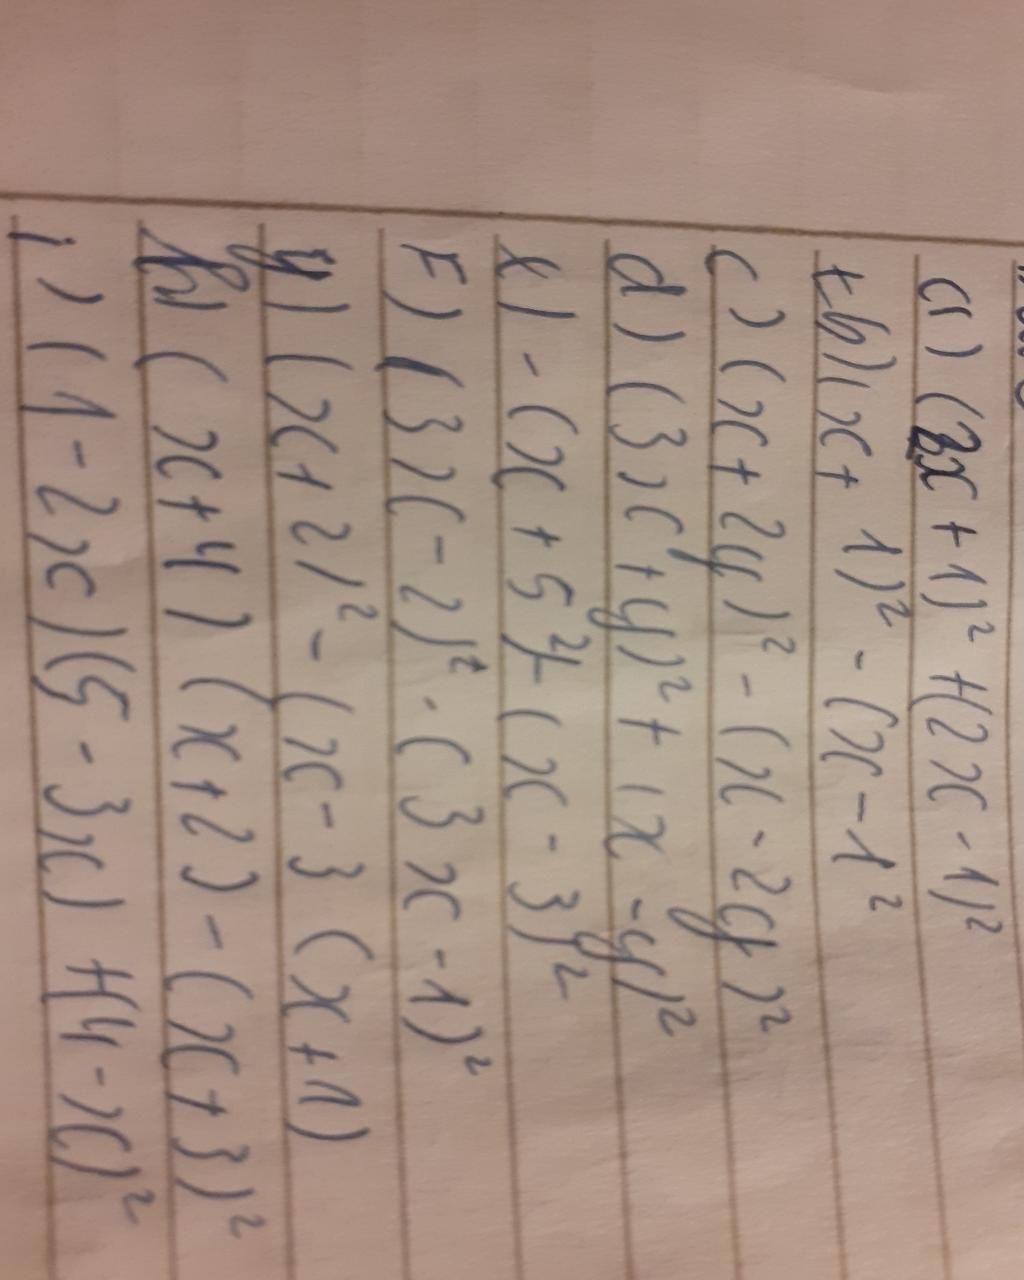 a) (2x + 1)² + (2x - 1)²
b) (x + 1)² - (x - 1²
c) (x + 2y)² - (x - 2y)²
d) (3x + y)² + (x - y)²
x) - (x + 5)² - (x - 3)²
F) (3x - 2)² - (3x - 1)²
y) (x + 2)² - (x - 3 (x + 1)
h) (x + 4) (x + 2) - (x + 3)²
i) (1 - 2x) (5 - 3x) + (4 - x)²